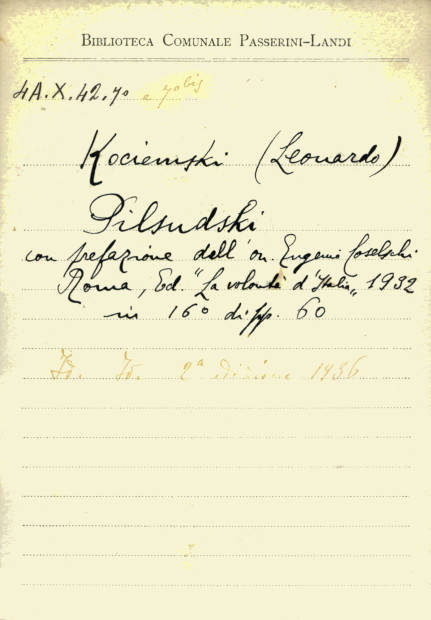 BIBLIOTECA COMUNALE PASSERINI-LANDI
4A.X.42.70 e 70bis
Kociemski (Leonardo)
Pilsudski
con prefazione dell'on. Eugenio Coselschi
Roma, Ed. "La volontà d'Italia„ 1932
in 16° di pp. 60
Id. Id. 2ª edizione 1936